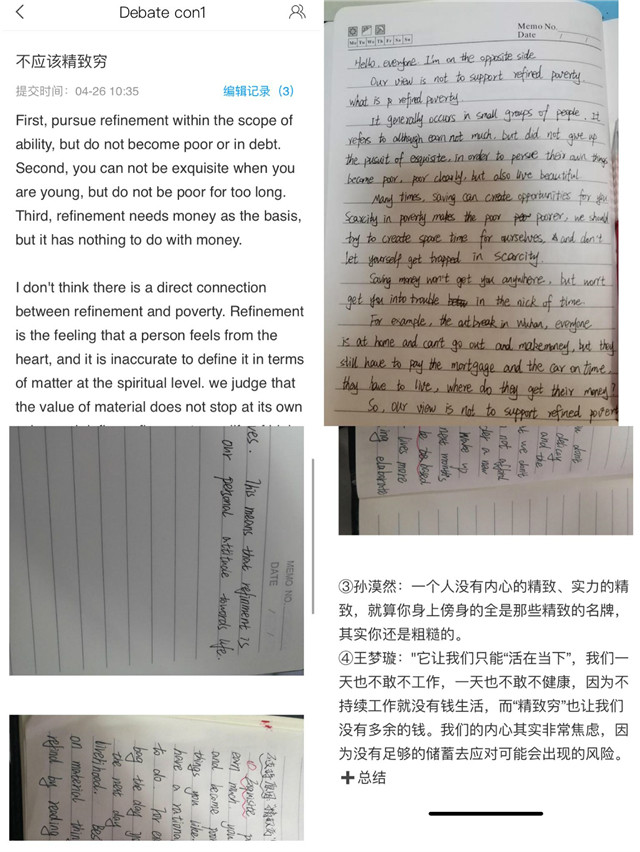 Debate con1
不应该精致穷
提交时间：04-26 10:35
编辑记录（3）
First, pursue refinement within the scope of
ability, but do not become poor or in debt.
Second, you can not be exquisite when you
are young, but do not be poor for too long.
Third, refinement needs money as the basis,
but it has nothing to do with money.
I don't think there is a direct connection
between refinement and poverty. Refinement
is the feeling that a person feels from the
heart, and it is inaccurate to define it in terms
of matter at the spiritual level. we judge that
the value of material does not stop at its own
ves. This means that refinement is
our personal attitude towards life.
MEMO NO.
DATE / /
even much you
and become poor
things you like.
have a rationa
to do. For ex
bag the day
the next day
livelihood. Bes
on material thin
refind by reading
Memo No.
Date / /
Mo Tu We Th Fr Sa Su
Hello, everyone I'm on the opposite side
Our view is not to support refined poverty.
what is refined poverty.
It generally occurs in small groups of people. It
refers to although earn not much, but did not give up
the pusuit of exquisite, in order to persue their own things
become poor, poor clearly, but also live beautiful
Many times, saving can create opportunities for you
Scarcity in poverty makes the poor poorer, we should
try to create spare time for ourselves, and don't
let yourself get trapped in scarcity
Saving money won't get you anywhere, but won't
get you into trouble in the nick of time
For example, the outbreak in Wuhan, everyone
is at home and can't go out and makemoney, but they
still have to pay the mortgage and the car on time,
they have to live, where do they get their money?
So, our view is not to support refined povert
and the
we don't
not afford
for a new
make up
lives more
ing elaborate
③孙漠然：一个人没有内心的精致、实力的精
致，就算你身上傍身的全是那些精致的名牌，
其实你还是粗糙的。
④王梦璇："它让我们只能“活在当下”，我们一
天也不敢不工作，一天也不敢不健康，因为不
持续工作就没有钱生活，而“精致穷”也让我们
没有多余的钱。我们的内心其实非常焦虑，因
为没有足够的储蓄去应对可能会出现的风险。
➕总结